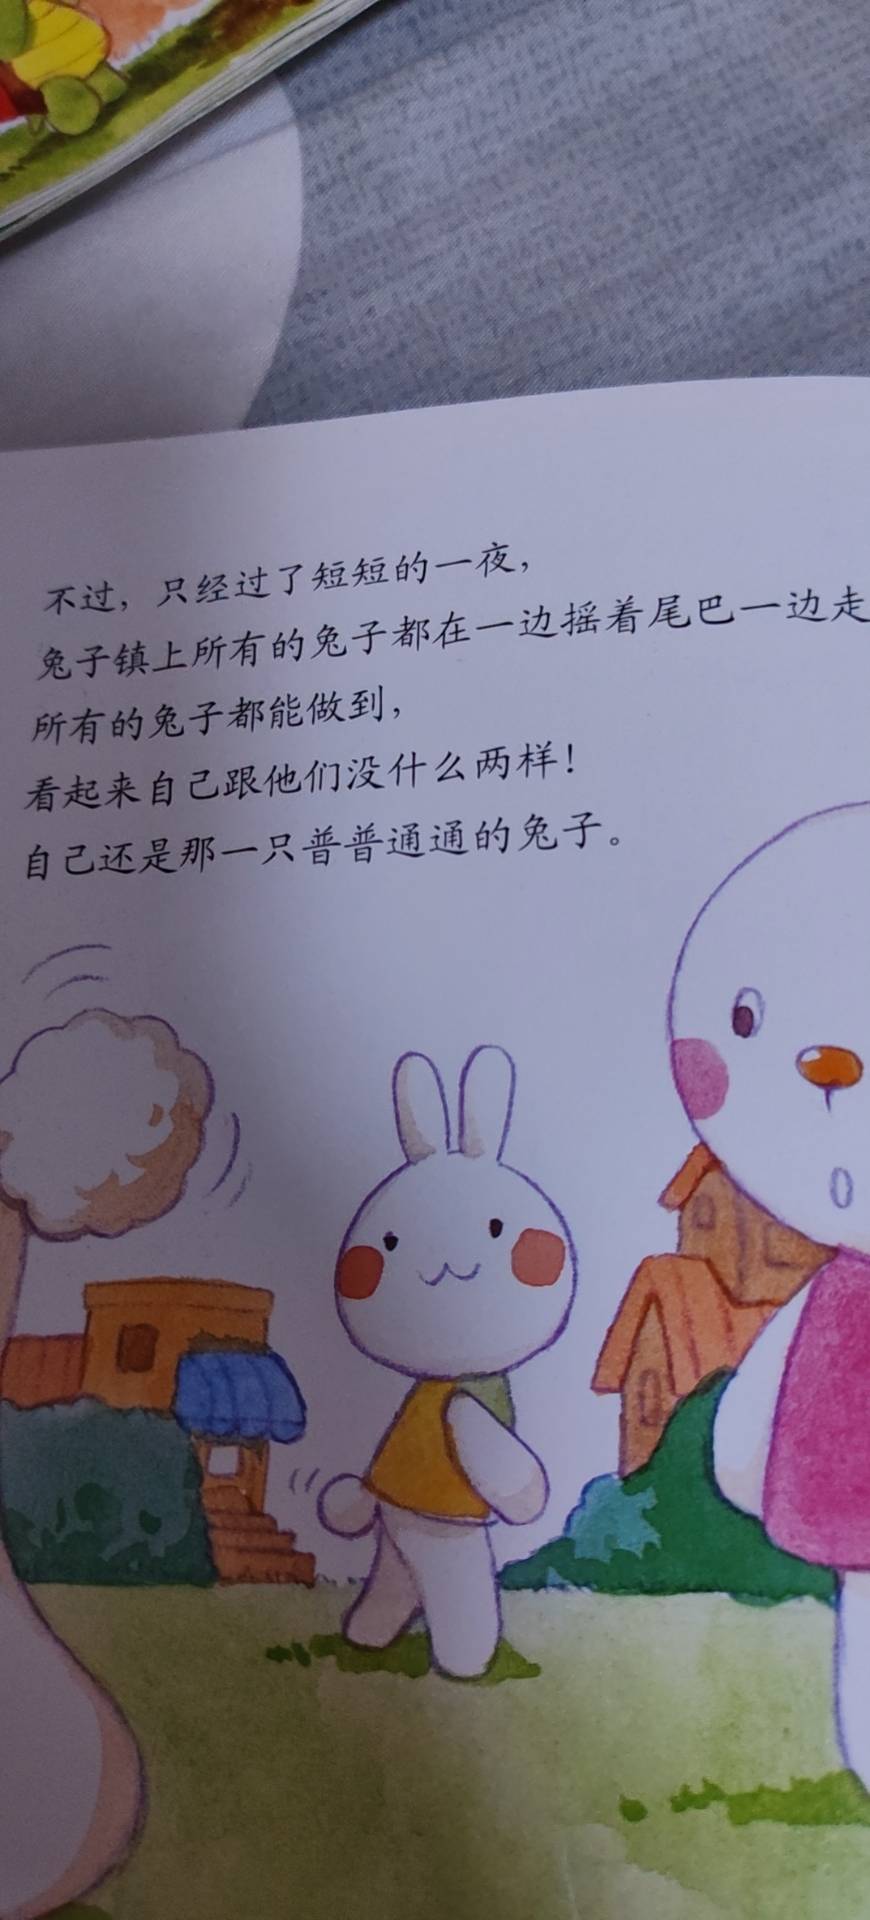 不过，只经过了短短的一夜，
兔子镇上所有的兔子都在一边摇着尾巴一边走
所有的兔子都能做到，
看起来自己跟他们没什么两样！
自己还是那一只普普通通的兔子。